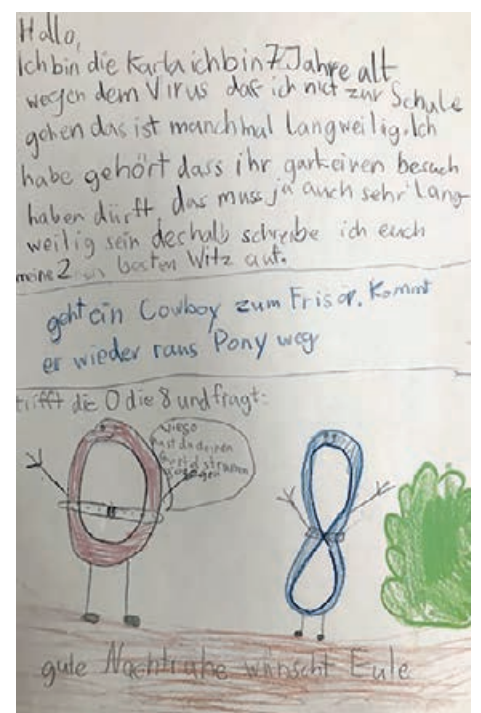 Hallo,
Ich bin die Karla ich bin 7 Jahre alt
wegen dem Virus daf ich nict zur Schule
gehen das ist manchmal langweilig. Ich
habe gehört dass ihr garkeinen besuch
haben dürft, das muss ja auch sehr lang-
weilig sein deshalb schreibe ich euch
meine 2 besten Witz auf.
geht ein Cowboy zum Frisör. Kommt
er wieder raus Pony weg
trifft die 0 die 8 und fragt:
wieso
hast du deinen
Gürtel so stramm
gute Nachtruhe wünscht Eule